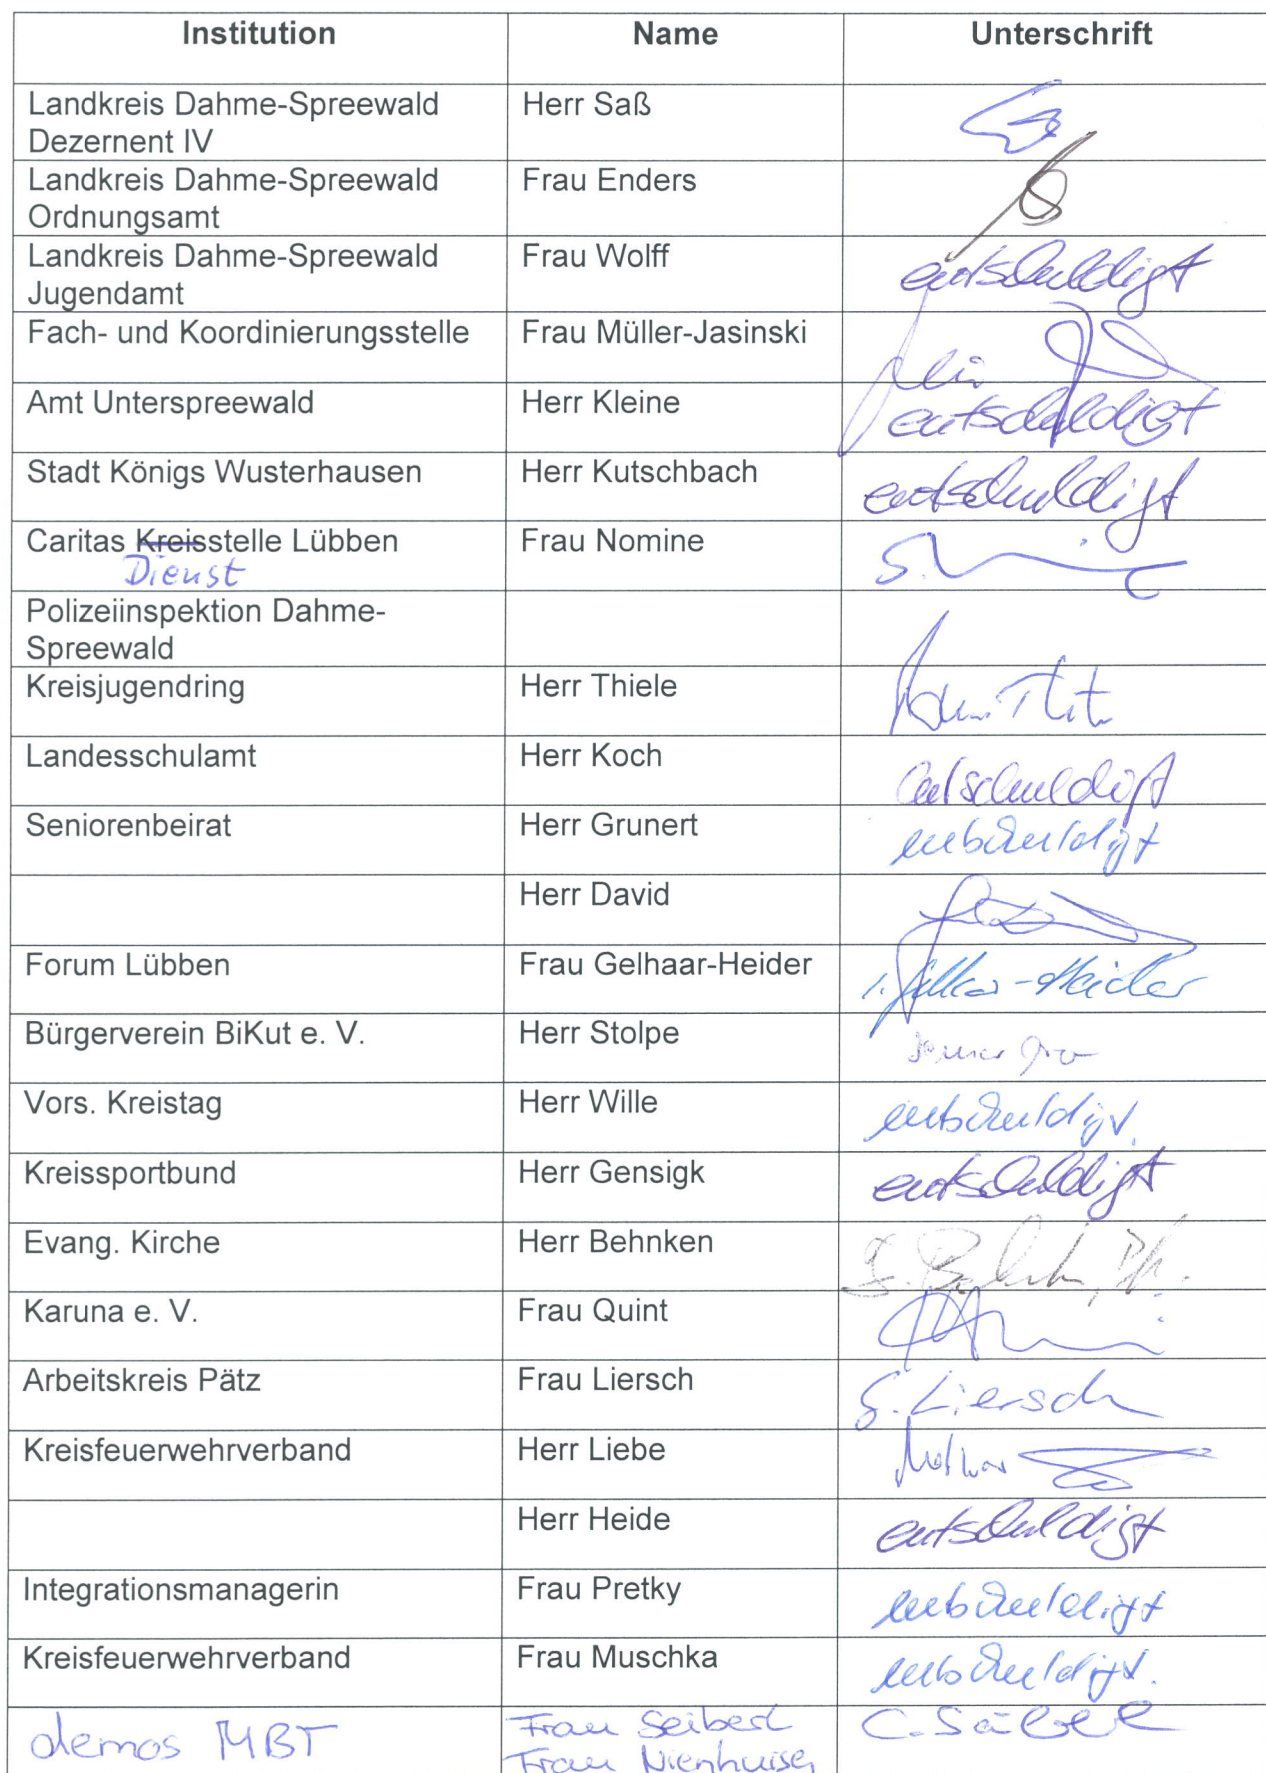 Institution Name Unterschrift
Landkreis Dahme-Spreewald Herr Saß
Dezernent IV
Landkreis Dahme-Spreewald Frau Enders
Ordnungsamt
Landkreis Dahme-Spreewald Frau Wolff entschuldigt
Jugendamt
Fach- und Koordinierungsstelle Frau Müller-Jasinski
Amt Unterspreewald Herr Kleine entschuldigt
Stadt Königs Wusterhausen Herr Kutschbach entschuldigt
Caritas Kreisstelle Lübben Frau Nomine
Dienst
Polizeiinspektion Dahme-
Spreewald
Kreisjugendring Herr Thiele
Landesschulamt Herr Koch entschuldigt
Seniorenbeirat Herr Grunert entschuldigt
Herr David
Forum Lübben Frau Gelhaar-Heider
Bürgerverein BiKut e. V. Herr Stolpe
Vors. Kreistag Herr Wille entschuldigt.
Kreissportbund Herr Gensigk entschuldigt
Evang. Kirche Herr Behnken
Karuna e. V. Frau Quint
Arbeitskreis Pätz Frau Liersch S. Liersch
Kreisfeuerwehrverband Herr Liebe
Herr Heide entschuldigt
Integrationsmanagerin Frau Pretky entschuldigt
Kreisfeuerwehrverband Frau Muschka entschuldigt.
demos MBT Frau Seibert
Frau Nienhuisen